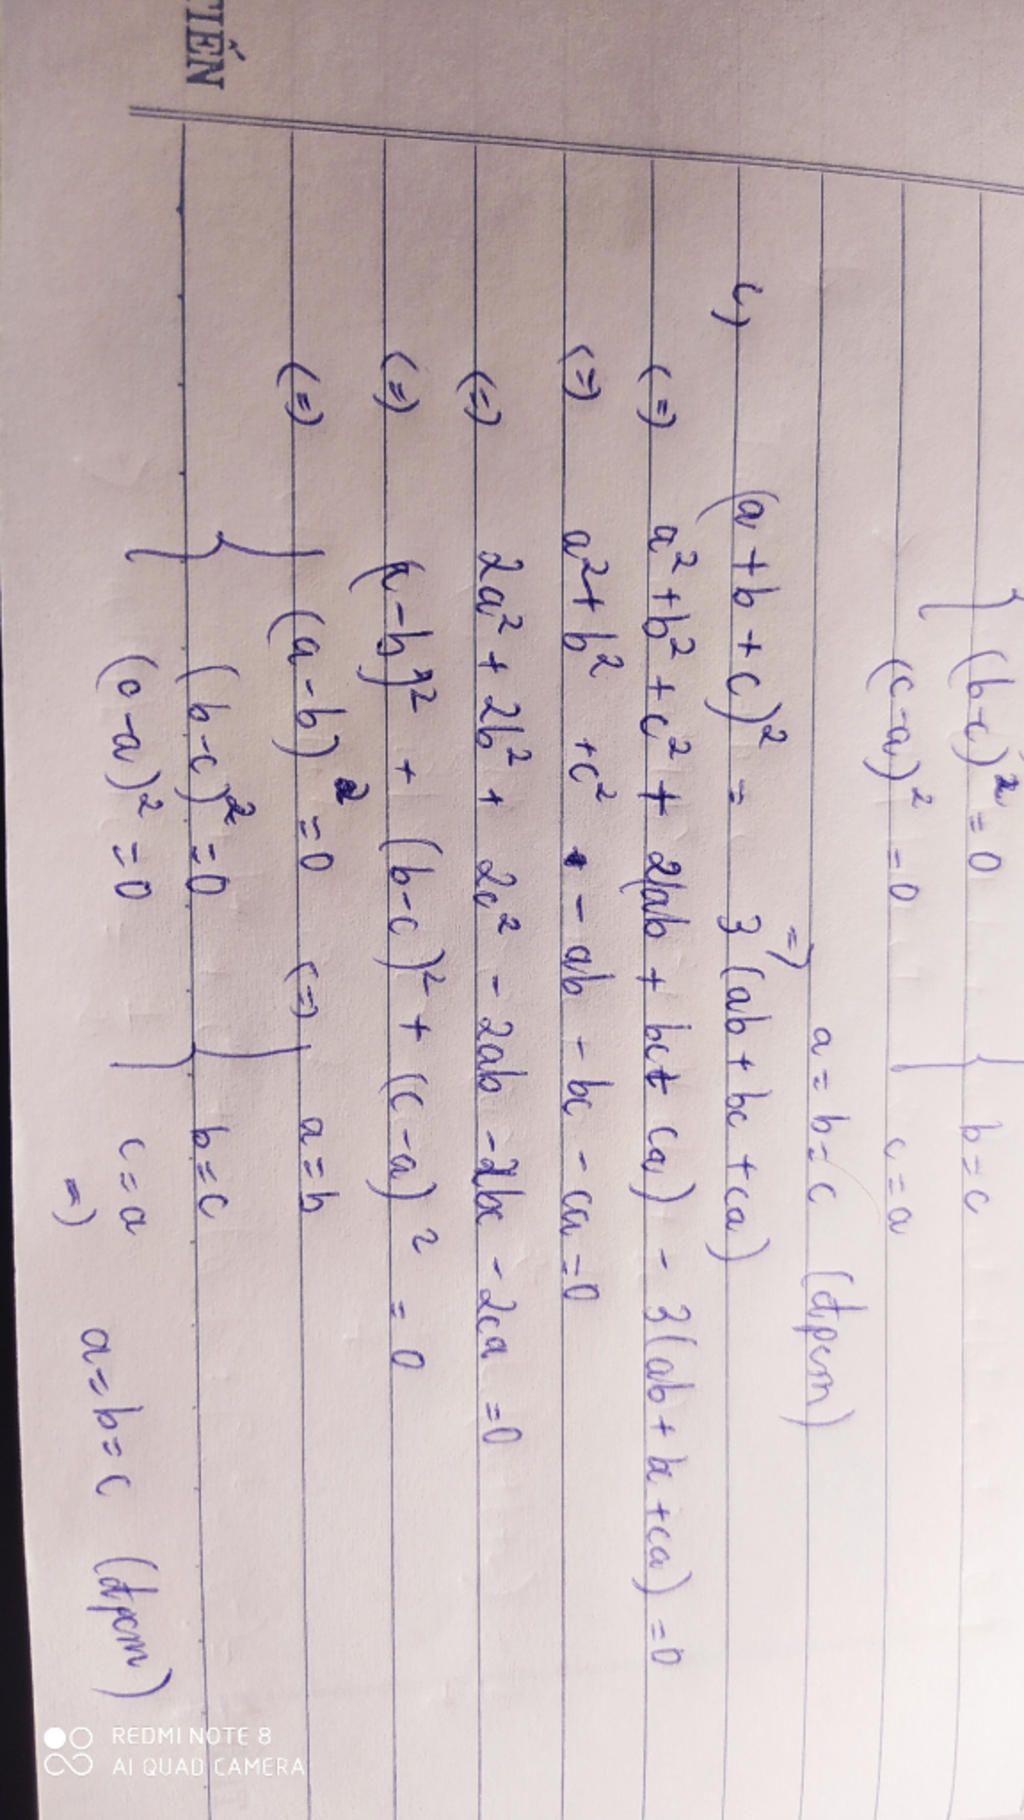 (b-c)² = 0    b = c
(c-a)² = 0    c = a
=) a = b = c (đpcm)
c) (a + b + c)² = 3(ab + bc + ca)
(=) a² + b² + c² + 2(ab + bc + ca) - 3(ab + bc + ca) = 0
(=) a² + b² + c² - ab - bc - ca = 0
(=) 2a² + 2b² + 2c² - 2ab - 2bc - 2ca = 0
(=) (a-b)² + (b-c)² + (c-a)² = 0
(=) (a-b)² = 0 (=) a = b
(b-c)² = 0    b = c
(c-a)² = 0    c = a
=) a = b = c (đpcm)
TIẾN
REDMI NOTE 8
AI QUAD CAMERA